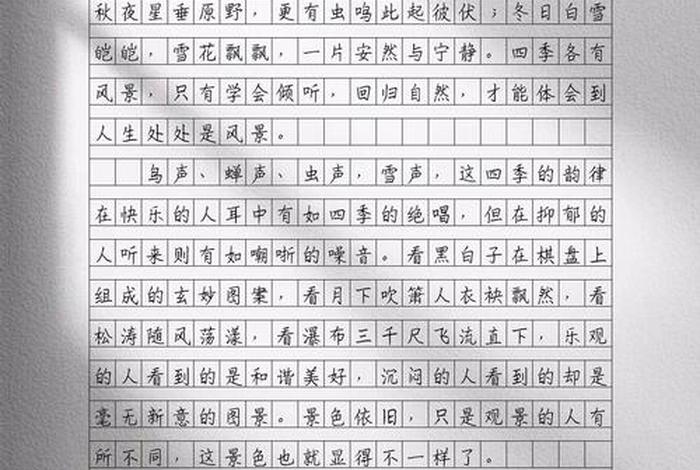 秋夜星垂原野，更有虫鸣此起彼伏；冬日白雪
皑皑，雪花飘飘，一片安然与宁静。四季各有
风景，只有学会倾听，回归自然，才能体会到
人生处处是风景。
鸟声、蝉声、虫声，雪声，这四季的韵律
在快乐的人耳中有如四季的绝唱，但在抑郁的
人听来则有如嘲哳的噪音。看黑白子在棋盘上
组成的玄妙图案，看月下吹箫人衣袂飘然，看
松涛随风荡漾，看瀑布三千尺飞流直下，乐观
的人看到的是和谐美好，沉闷的人看到的却是
毫无新意的图景。景色依旧，只是观景的人有
所不同，这景色也就显得不一样了。